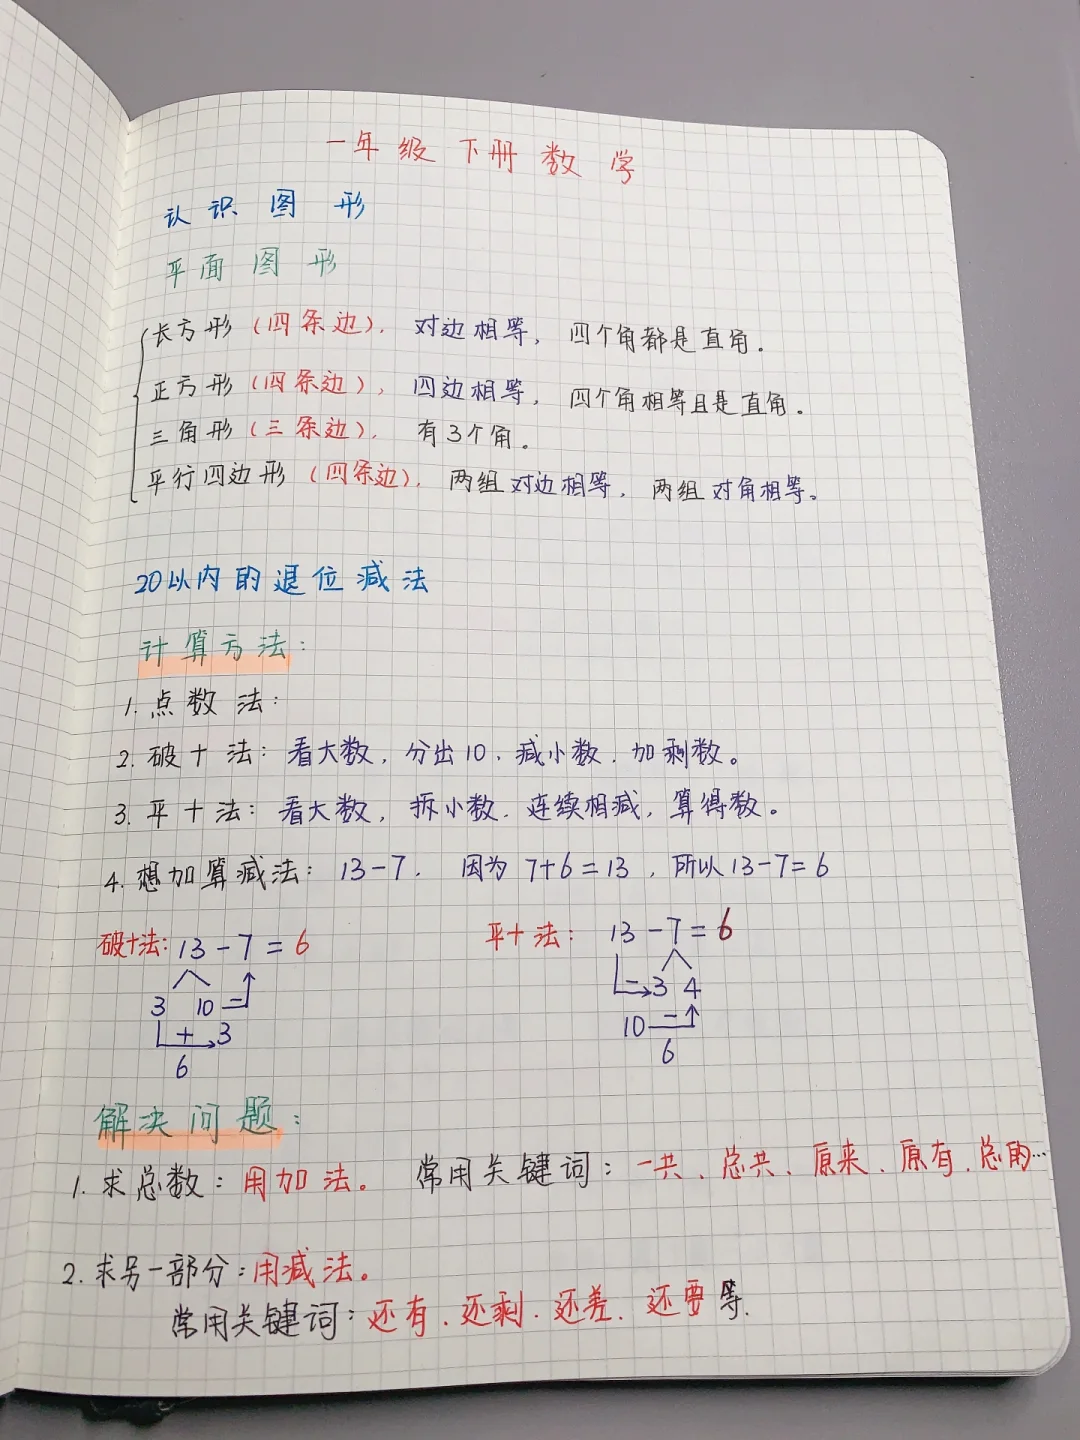 一年级下册数学
认识图形
平面图形
长方形(四条边),对边相等,四个角都是直角.
正方形(四条边),四边相等,四个角相等且是直角.
三角形(三条边),有3个角。
平行四边形(四条边),两组对边相等,两组对角相等。
20以内的退位减法
计算方法:
1.点数法:
2.破十法:看大数,分出10、减小数、加剩数。
3.平十法:看大数,拆小数、连续相减,算得数。
4.想加算减法:13-7. 因为7+6=13,所以13-7=6
破十法:13-7=6 平十法:13-7=6
3 10 - - 3 4
+ 3 10 -
6 6
解决问题:
1.求总数:用加法。 常用关键词:一共、总共、原来、原有、总的…
2.求另一部分:用减法。
常用关键词:还有、还剩、还差、还要等.